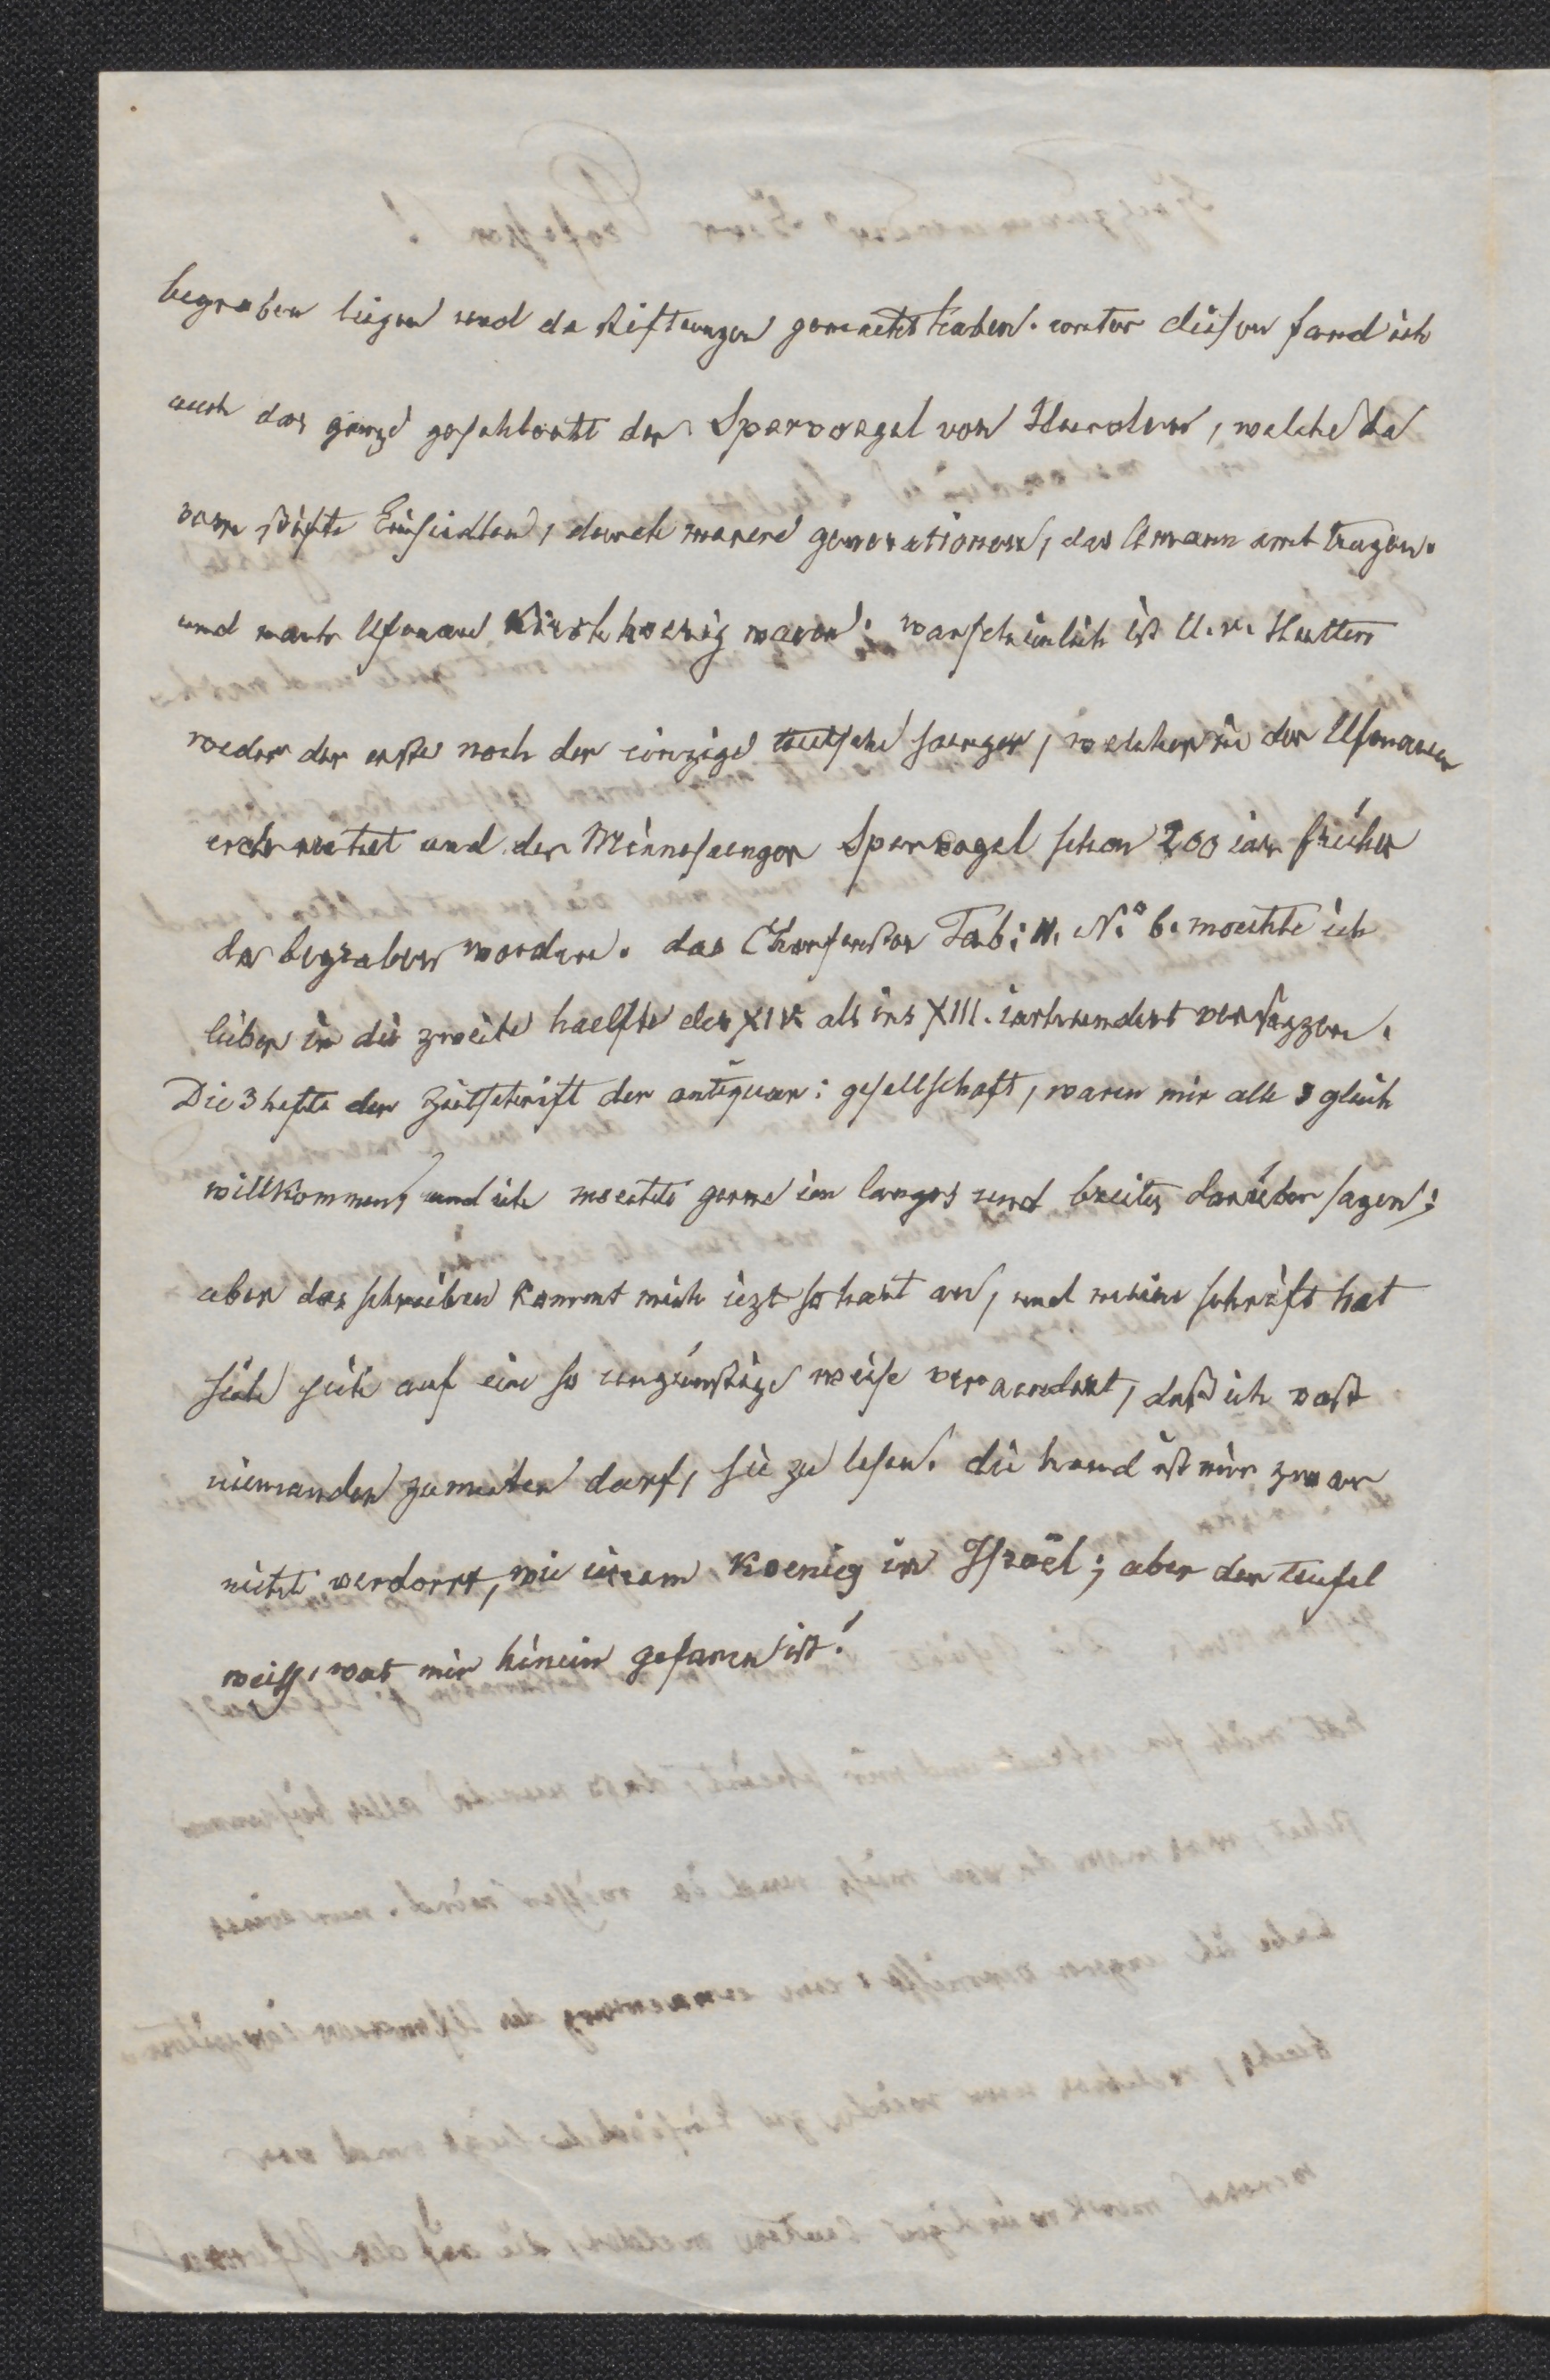 begraben liegen und da stiftungen gemacht haben. unter disen fand ich
auch das ganze geschlecht der Spervogel von Hurden, welche da
vom stifte Einsidlen, durch merere generationen, das Amann amt trugen.
und nach Ufenau Kirchhoerig waren. warscheinlich ist U. v. Hutten
weder der erste noch der einzige teutsche saenger, welcher in der Ufenau
und der Minnesaenger Spervogel schon 200 iar früher
da begraben worden. das Chorfenster Tab: II. No. 6. moechte ich
lieber in die zweite haelfte des XIV. als ins XIII. iarhundert versezzen.
Die 3 hefte der Zeitschrift der antiquar: gesellschaft, waren mir alle 3 gleich
willkommen, und ich moechte gerne ein langes und breites darüber sagen;
aber das schreiben kommt mich iezt so hart an, und meine schrift hat
sich sich auf eine so ungünstige weise veraendert, daß ich vast
niemanden zumuten darf, sie zu lesen. die hand ist mir zwar
nicht verdorrt, wie ienem Koenig in Israël; aber der teufel
weiss, was mir hinein gefaren ist!